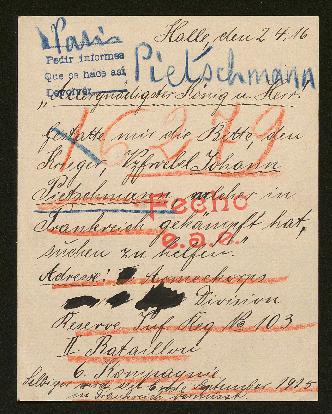 Halle, den 2 4. 16
Paris
Pedir informes
Que se hace así
Devolver
Pietschmann
"Allergnädigster König u. Herr.
16279
Gestatte mir die Bitte, den
Krieger, Vzfwebel Johann
Pietschmann, welcher in
Fecho
Frankreich gekämpft hat,
e.a.e.
suchen zu helfen."
Adresse: Armeekorps
Division
Reserve Inf Reg No 103
II. Bataillon
6. Kompagnie
Selbiger wird seit Ende September 1915
in Frankreich vermisst.